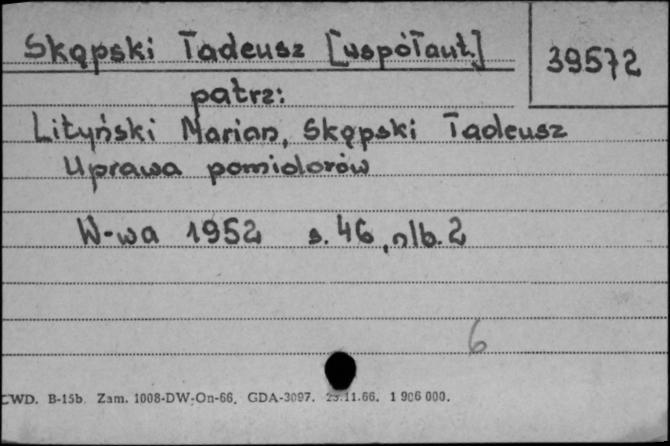 Skąpski Tadeusz [współaut.]
39572
patrz:
Lityński Marian, Skąpski Tadeusz
Uprawa pomidorów
W-wa 1952 s. 46, nlb. 2
6
CWD. B-15b. Zam. 1008-DW-On-66. GDA-3097. 23.11.66. 1 906 000.